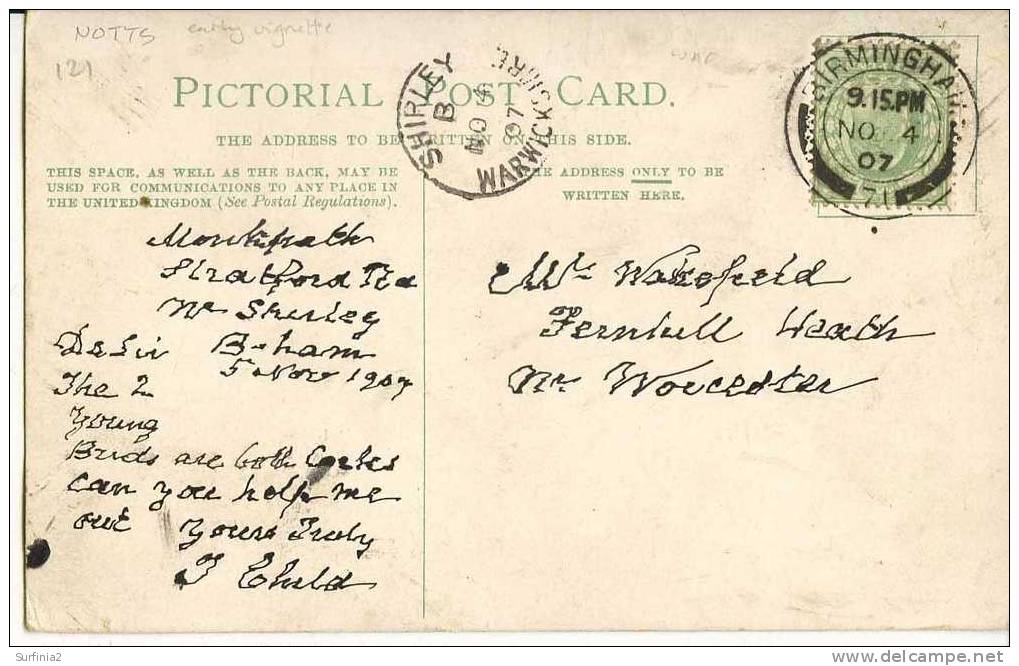 NOTTS early vignette
121
PICTORIAL POST CARD.
THE ADDRESS TO BE WRITTEN ON THIS SIDE.
THIS SPACE, AS WELL AS THE BACK, MAY BE
USED FOR COMMUNICATIONS TO ANY PLACE IN
THE UNITED KINGDOM (See Postal Regulations).
THE ADDRESS ONLY TO BE
WRITTEN HERE.
SHIRLEY
B
NO 4
07
WARWICKSHIRE
BIRMINGHAM
9.15.PM
NO 4
07
71
Stratford Rd
Nr Shirley
B-ham
5 Nov 1907
De Sir
The 2
Young
Birds are both Cocks
can you help me
out Yours Truly
J Child
Mr Wakefield
Fernhill Heath
Nr Worcester
Surfinia2
delcampe.net